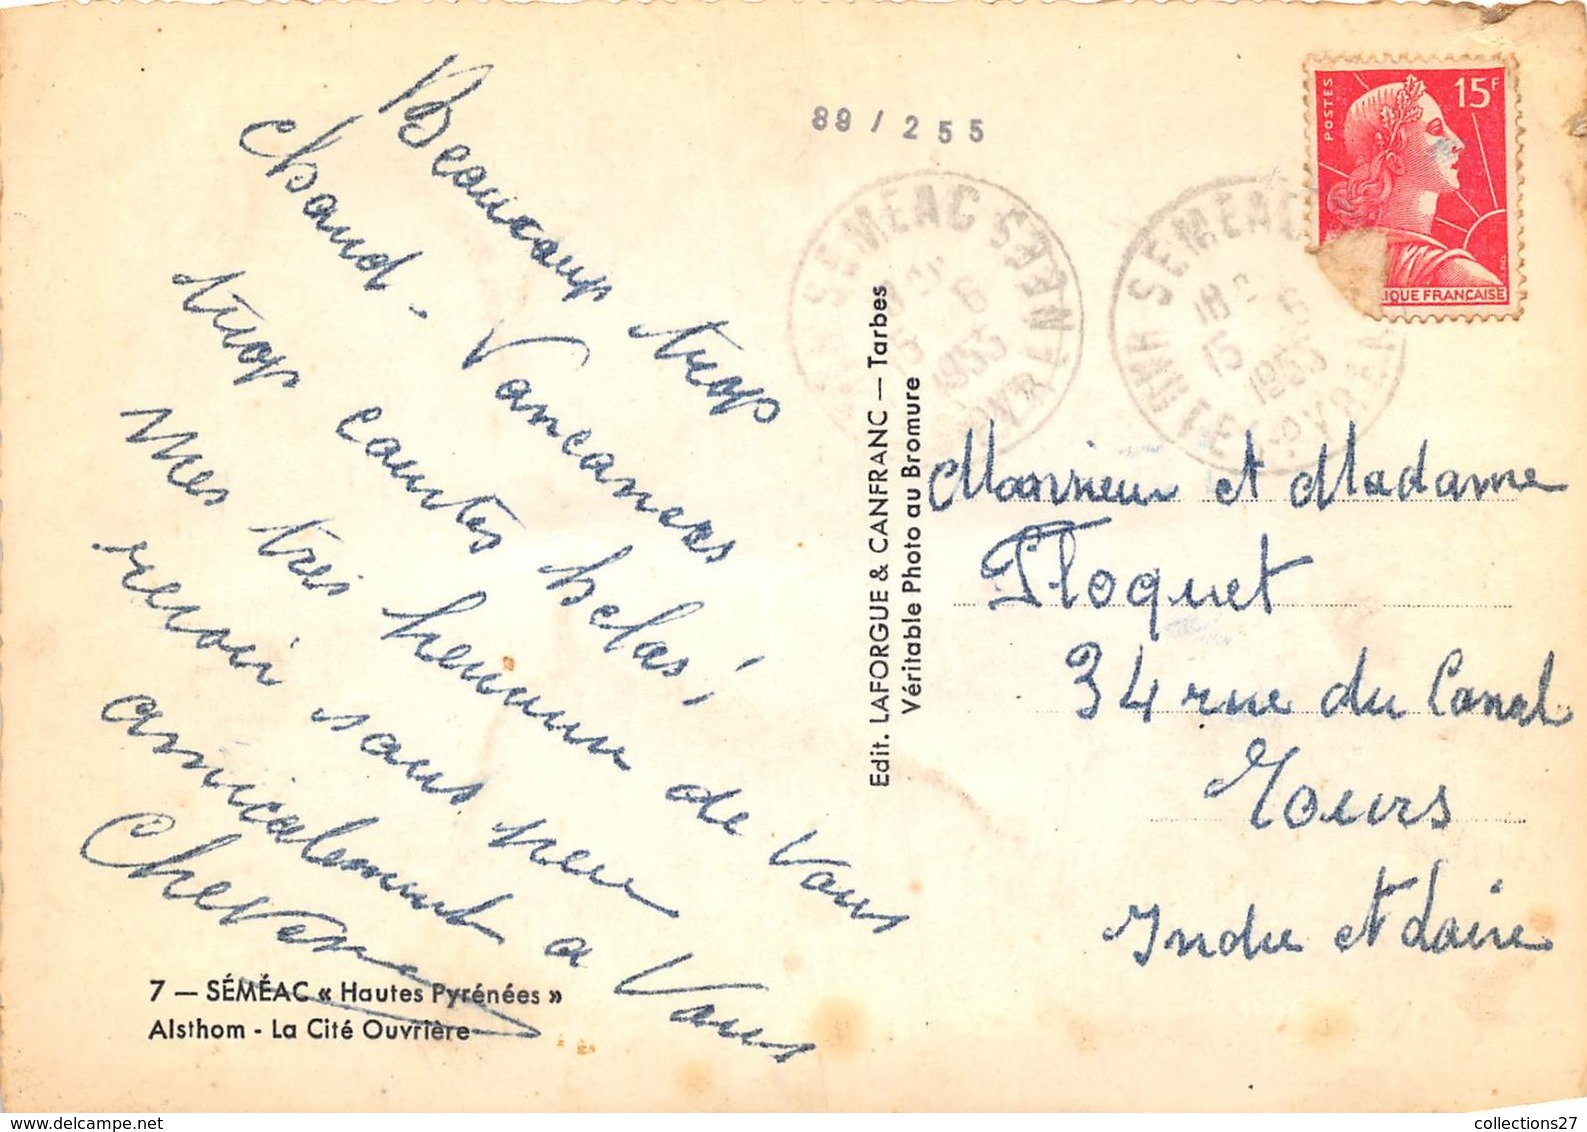 89 / 255
POSTES
15F
RÉPUBLIQUE FRANÇAISE
SEMEAC
HAUTES-PYRENEES
18
15 6
1955
Beaucoup trop
chaud - Vacances
trop courtes helas!
Mes très heureux de Vous
revoir sous peu
amicalement a Vous
Monsieur et Madame
Floquet
34 rue du Canal
Tours
Indre et Loire
Edit. LAFORGUE & CANFRANC — Tarbes
Véritable Photo au Bromure
7 — SÉMÉAC « Hautes Pyrénées »
Alsthom - La Cité Ouvrière
collections27